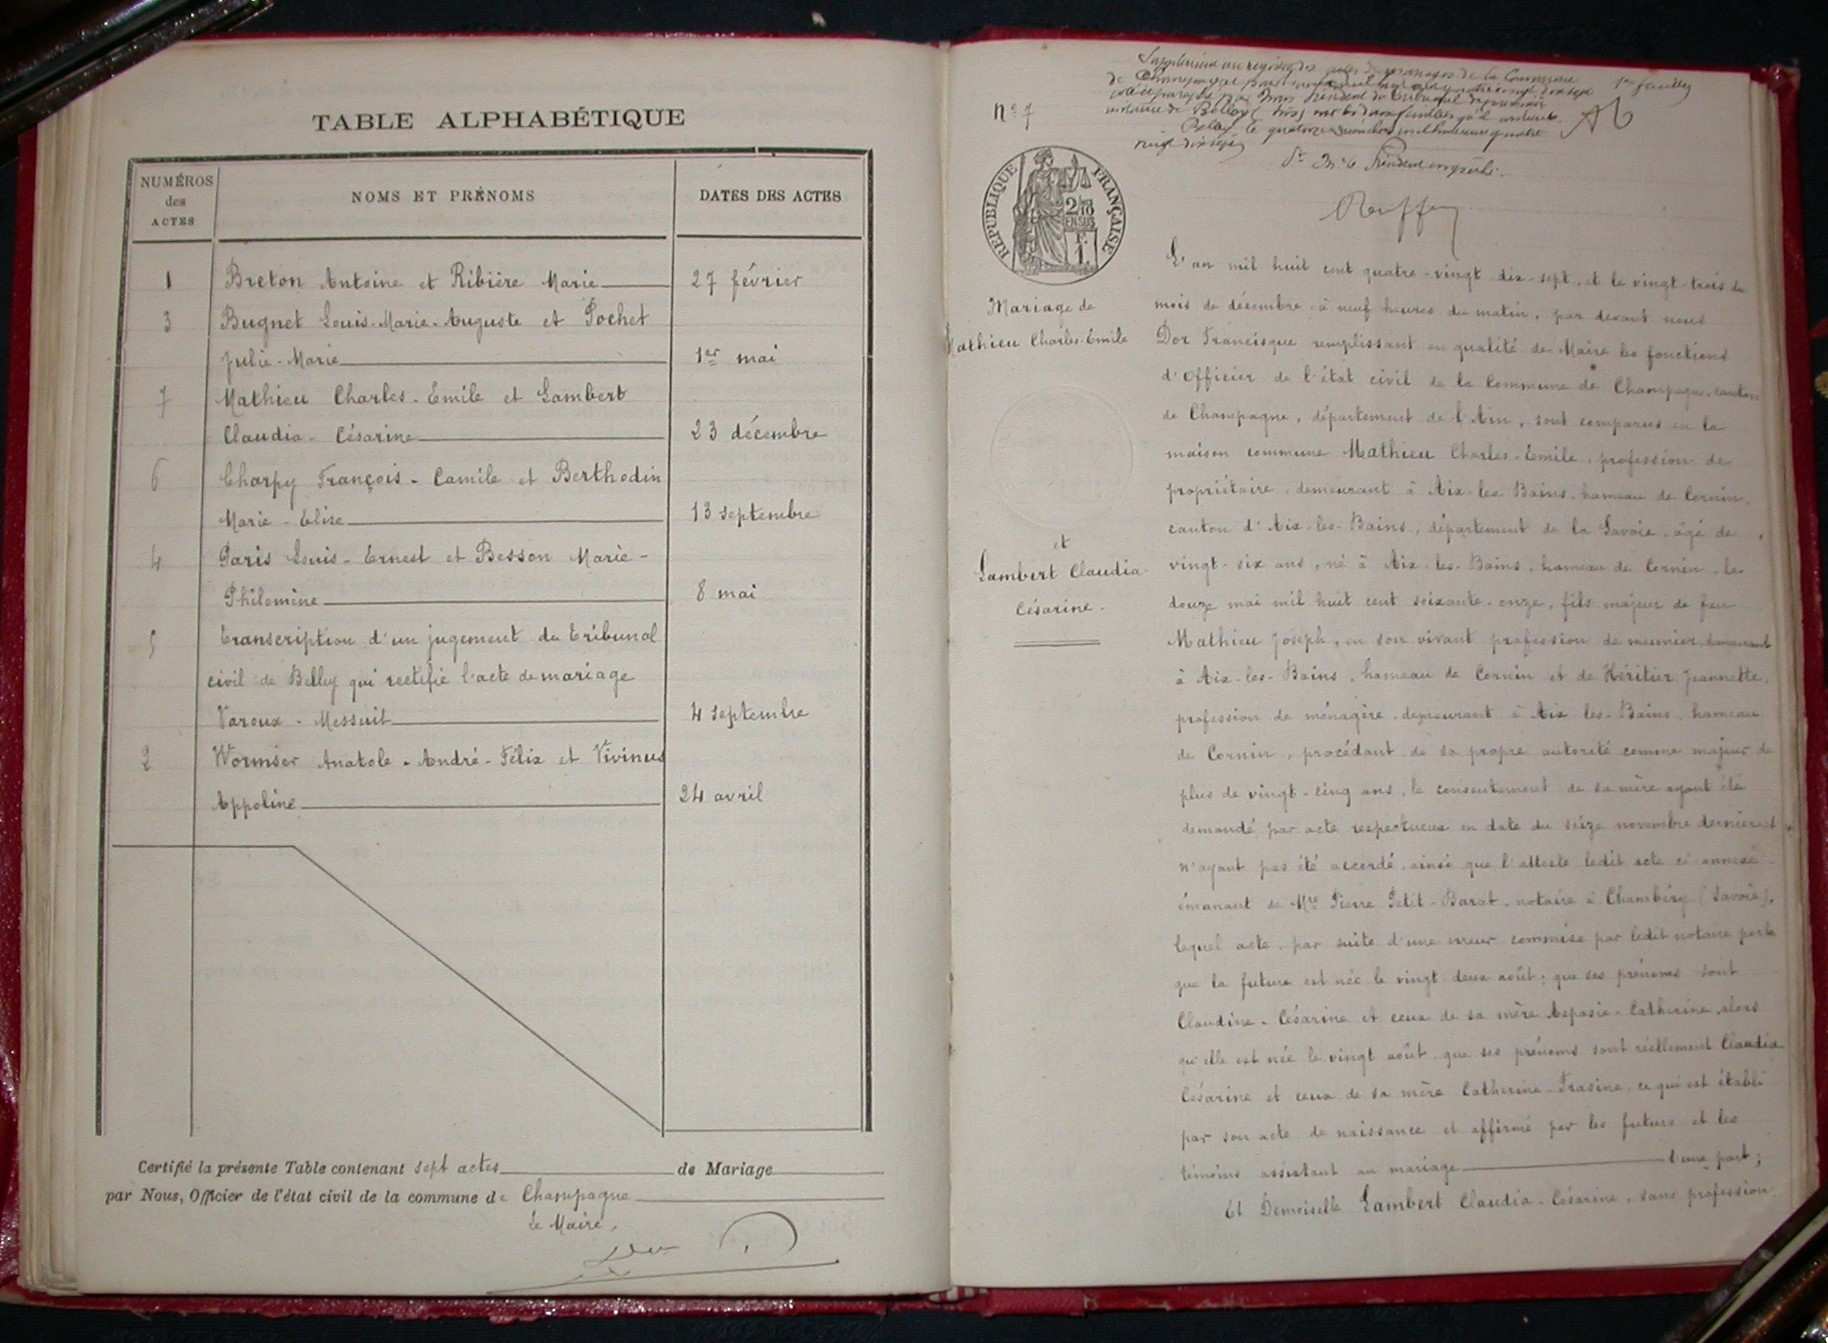 TABLE ALPHABÉTIQUE
NUMÉROS
des
ACTES
NOMS ET PRÉNOMS
DATES DES ACTES
1 Breton Antoine et Ribière Marie 27 février
3 Bugnet Louis-Marie-Auguste et Pochet
Julie-Marie 1er mai
7 Mathieu Charles-Emile et Lambert
Claudia-Césarine 23 décembre
6 Charpy François-Camile et Berthodin
Marie-Elise 13 septembre
4 Paris Louis-Ernest et Besson Marie-
Philomène 8 mai
5 Transcription d'un jugement du tribunal
civil de Belley qui rectifie l'acte de mariage
Varoux-Messuit 4 septembre
2 Wormser Anatole-André-Félix et Vivinus
Appoline 24 avril
Certifié la présente Table contenant sept actes de Mariage
par Nous, Officier de l'état civil de la commune de Champagne
Le Maire,
1er feuillet
Nº 7
RÉPUBLIQUE FRANÇAISE
2/10
EN SUS
1F.
Mariage de
Mathieu Charles-Emile
et
Lambert Claudia
Césarine.
L'an mil huit cent quatre-vingt dix-sept, et le vingt-trois du
mois de décembre à neuf heures du matin, par devant nous
Dor Francisque remplissant en qualité de Maire les fonctions
d'Officier de l'état civil de la commune de Champagne, canton
de Champagne, département de l'Ain, sont comparus en la
maison commune Mathieu Charles-Emile, profession de
propriétaire, demeurant à Aix-les-Bains, hameau de Cornin,
canton d'Aix-les-Bains, département de la Savoie, âgé de
vingt-six ans, né à Aix-les-Bains, hameau de Cornin, le
douze mai mil huit cent soixante-onze, fils majeur de feu
Mathieu Joseph, en son vivant profession de meunier demeurant
à Aix-les-Bains, hameau de Cornin et de Héritier Jeannette,
profession de ménagère, demeurant à Aix-les-Bains, hameau
de Cornin, procédant de sa propre autorité comme majeur de
plus de vingt-cinq ans, le consentement de sa mère ayant été
demandé par acte respectueux en date du seize novembre dernier et
n'ayant pas été accordé, ainsi que l'atteste ledit acte ci-annexé
émanant de Mre Pierre Petit-Barat, notaire à Chambéry (Savoie),
lequel acte, par suite d'une erreur commise par ledit notaire porte
que la future est née le vingt deux août; que ses prénoms sont
Claudine-Césarine et ceux de sa mère Aspasie-Catherine, alors
qu'elle est née le vingt août, que ses prénoms sont réellement Claudia
Césarine et ceux de sa mère Catherine-Frasine, ce qui est établi
par son acte de naissance et affirmé par les futurs et les
témoins assistant au mariage d'une part;
Et Demoiselle Lambert Claudia-Césarine, sans profession